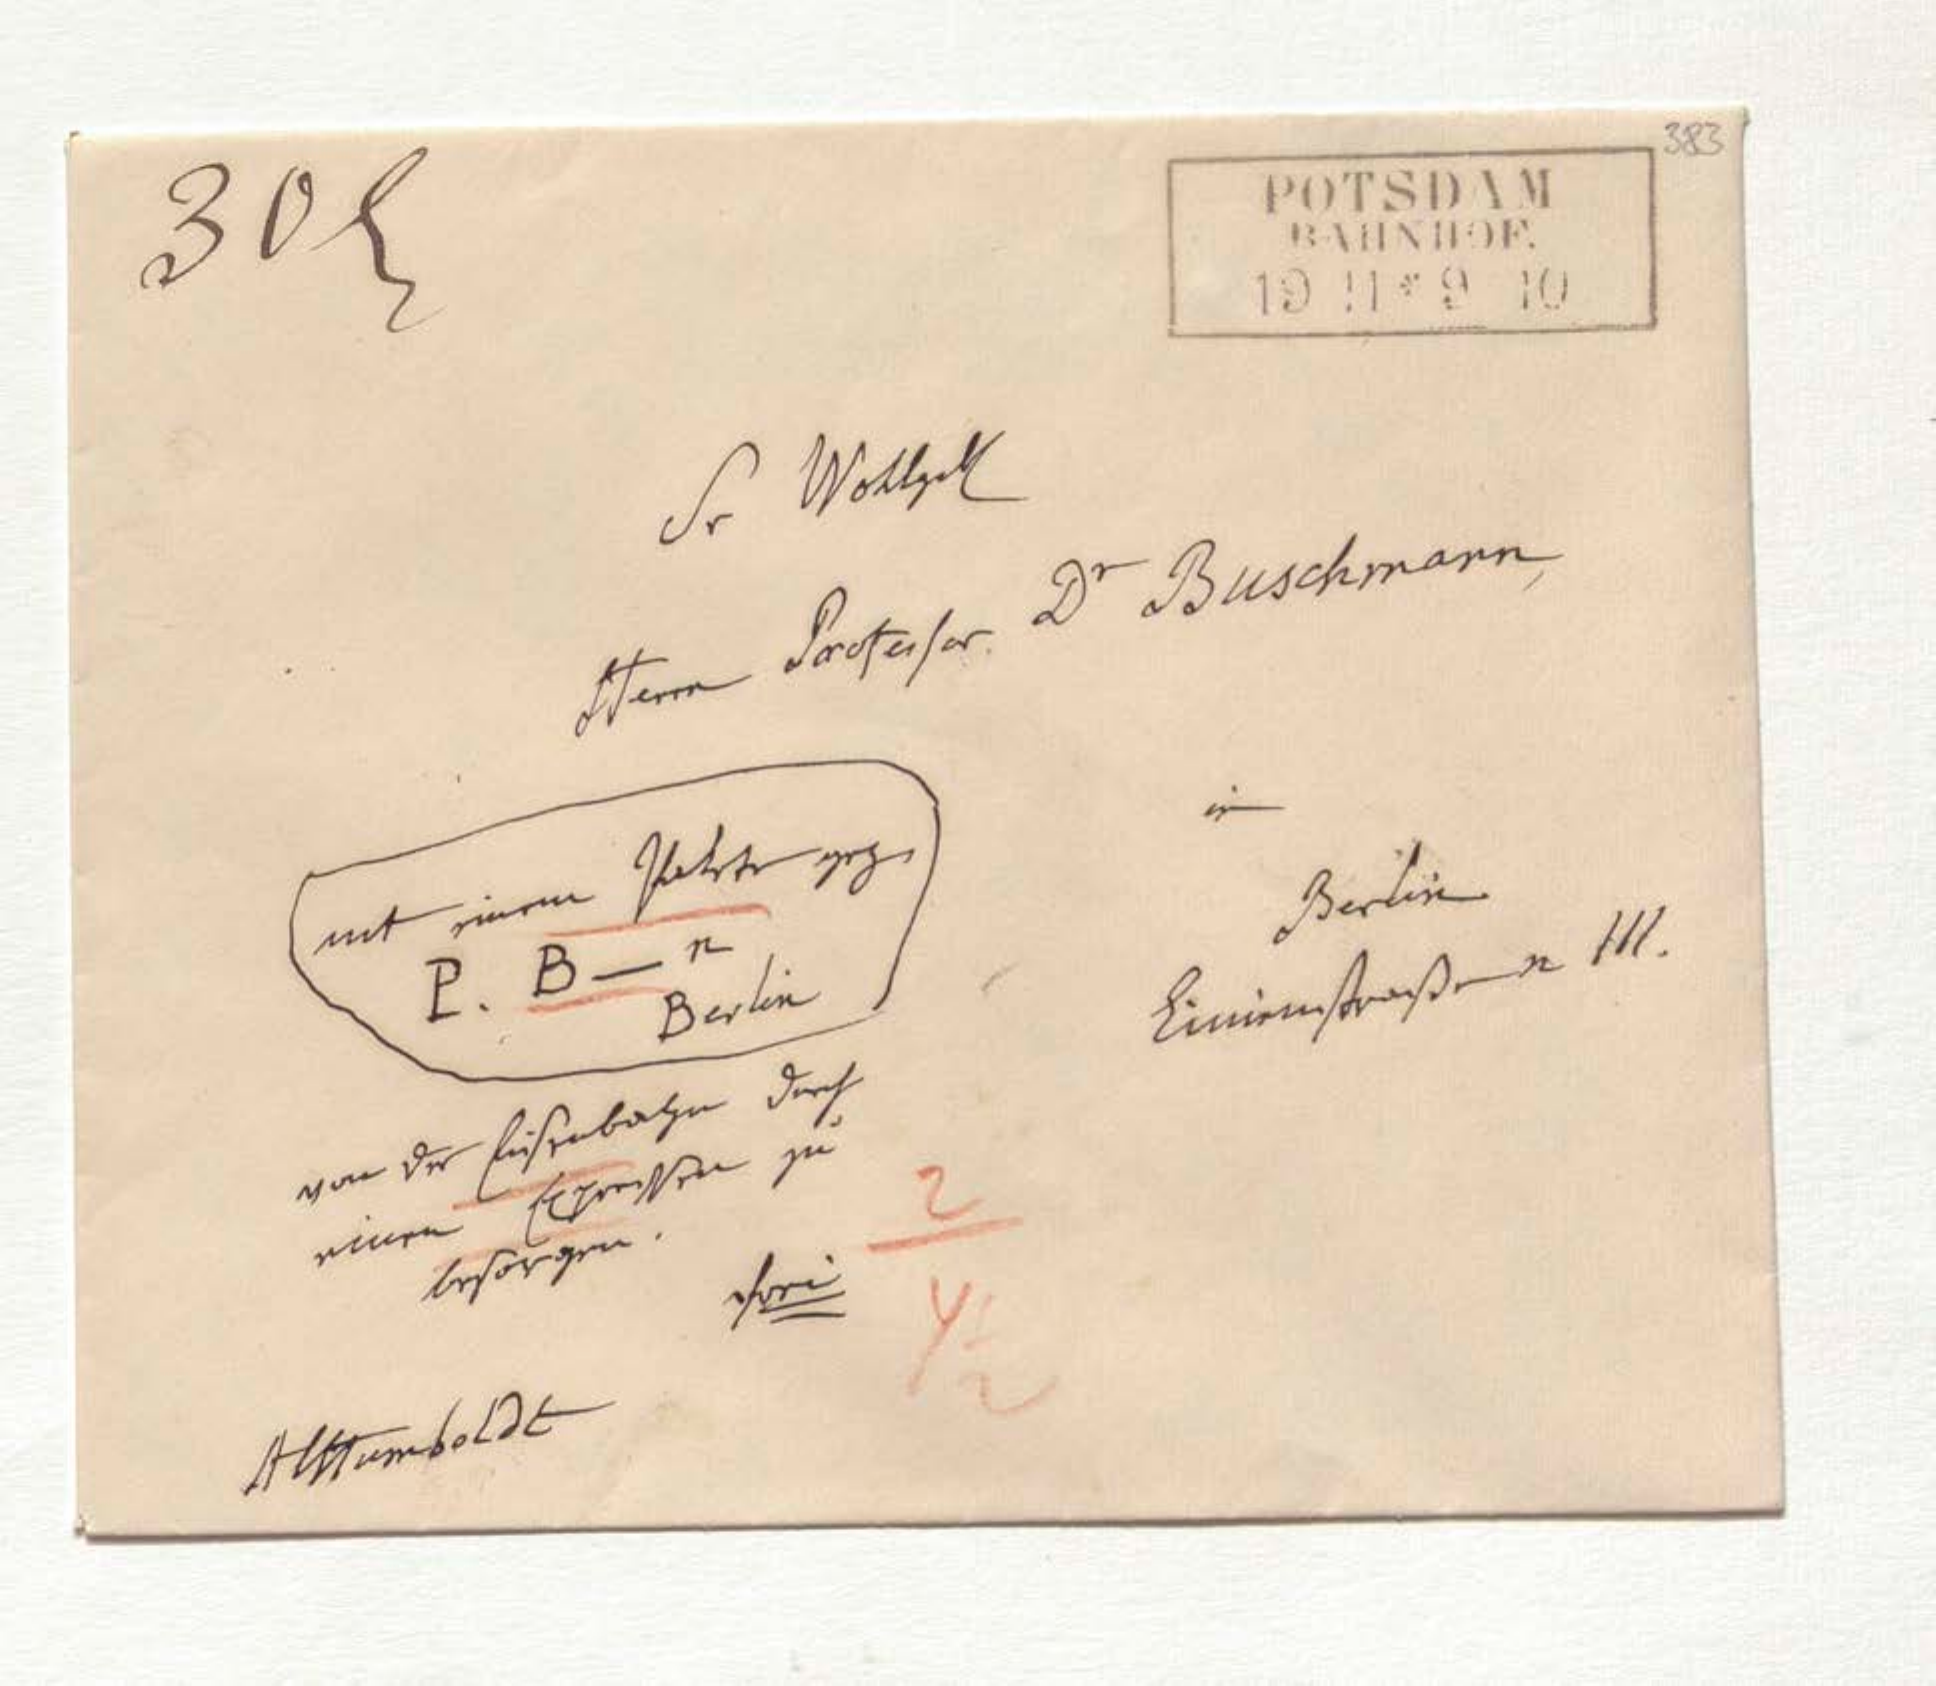 383
POTSDAM
BAHNHOF.
19 11 * 9 10
30
Sr Wohlgeb
Herrn Professor Dr Buschmann,
in
Berlin
Linienstraße n 111.
mit einem Pakete gez.
P. B—n
Berlin
von der Eisenbahn durch
einen Expressen zu
besorgen.
frei
2
4½
AlHumboldt